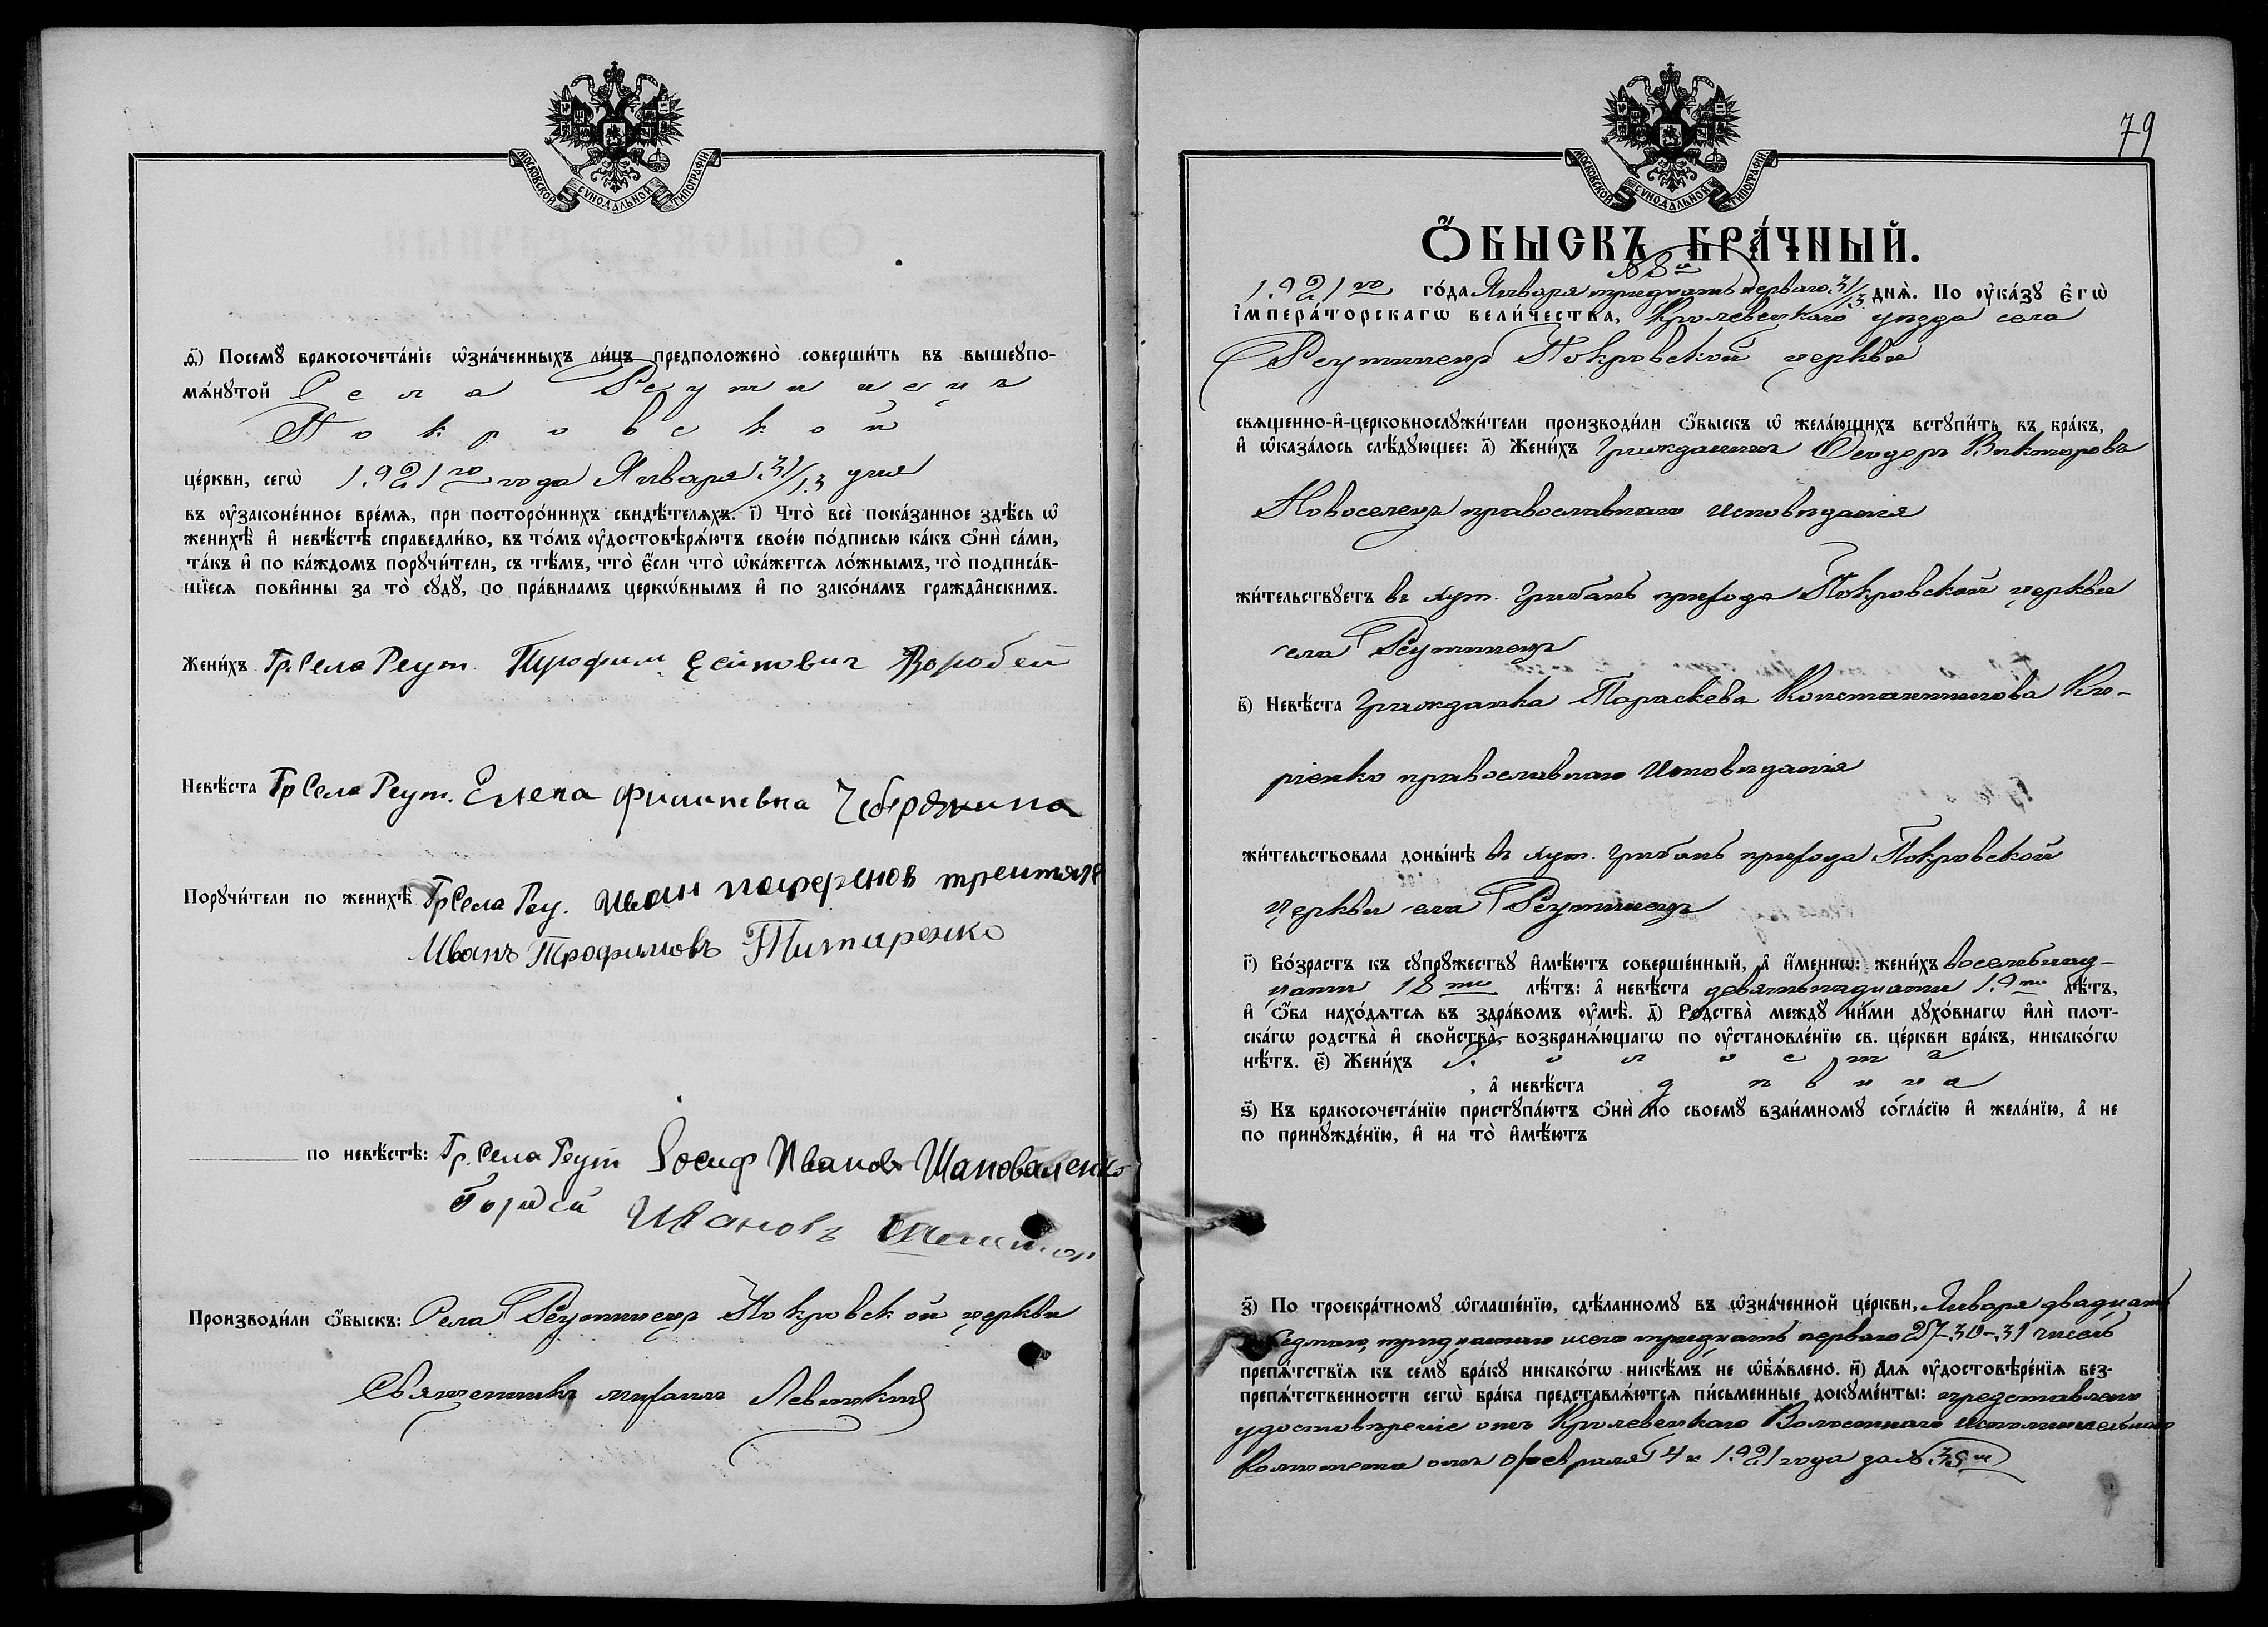 МОСКОВСКОЙ СѴНОДАЛЬНОЙ ТИПОГРАФІИ
ѳ҃) Посемꙋ̀ бракосочета́нїе ѡ҆зна́ченныхъ ли́цъ предположено̀ соверши́ть въ вышеꙋпо-
мѧ́нꙋтой Села Реутинецъ
Покровской
це́ркви, сегѡ̀ 1921го года Января 31/13 дня
въ ᲂу҆законе́нное вре́мѧ, при посторо́ннихъ свидѣ́телѧхъ. і҃) Что̀ всѐ пока́занное здѣ́сь ѡ҆
женихѣ̀ и҆ невѣ́стѣ справедли́во, въ то́мъ ᲂу҆достовѣрѧ́ютъ свое́ю по́дписью ка́къ ѻ҆нѝ са́ми,
та́къ и҆ по ка́ждомъ порꙋчи́тели, съ тѣ́мъ, что̀ є҆́сли что̀ ѡ҆ка́жетсѧ ло́жнымъ, то̀ подписа́в-
шїесѧ пови́нны за то̀ сꙋдꙋ̀, по пра́виламъ церкѡ́внымъ и҆ по зако́намъ гражда̑нскимъ.
Жени́хъ Гр. Села Реут. Трофим Воробей
Невѣ́ста Гр Села Реут. Елена Филиповна
Порꙋчи́тели по женихѣ̀ Гр Села Реу. Иван парфенов
Иванъ Трофимовъ Титаренко
по невѣ́стѣ: Гр. Села Реут Іосиф Иванов Шаповаленко
Гордей Ивановъ
Производи́ли ѻ҆́быскъ: Села Реутинецъ Покровской церкви
Священникъ Михаилъ Левицкій
79
МОСКОВСКОЙ СѴНОДАЛЬНОЙ ТИПОГРАФІИ
Ѻ҆́БЫСКЪ БРА́ЧНЫЙ.
№ 8й
1921го го́да Января тридцать перваго 31/13 днѧ̀. По ᲂу҆ка́зꙋ є҆гѡ̀
і҆мпера́торскагѡ вели́чества, Кролевецкаго уѣзда села
Реутинецъ Покровской церкви
свѧщенно-и҆-церковнослꙋжи́тели производи́ли ѻ҆́быскъ ѡ҆ жела́ющихъ встꙋпи́ть въ бра́къ,
и҆ ѡ҆каза́лось слѣ́дꙋющее: а҃) Жени́хъ Гражданинъ Феодоръ Викторовъ
Новоселецъ православнаго исповѣданія
жи́тельствꙋетъ въ хут. Грибань прихода Покровской церкви
села Реутинецъ
в҃) Невѣ́ста Гражданка Параскева Константинова Ки-
ріенко православнаго исповѣданія
жи́тельствовала доны́нѣ въ хут. Грибань прихода Покровской
церкви села Реутинецъ
г҃) Во́зрастъ къ сꙋпрꙋ́жествꙋ и҆мѣ́ютъ соверше́нный, а҆ и҆́меннѡ: жени́хъ восемьнад-
цати 18ти лѣ́тъ: а҆ невѣ́ста девятьнадцати 19ти лѣ́тъ,
и҆ ѻ҆́ба нахо́дѧтсѧ въ здра́вомъ ᲂу҆мѣ̀. д҃) Родства̀ междꙋ̀ ни́ми дꙋхо́внагѡ и҆лѝ плот-
ска́гѡ родства̀ и҆ свойства̀, возбранѧ́ющагѡ по ᲂу҆становле́нїю св. це́ркви бра́къ, никако́гѡ
нѣ́тъ. є҃) Жени́хъ холостъ
, а҆ невѣ́ста дѣвица
ѕ҃) Къ бракосочета́нїю пристꙋпа́ютъ ѻ҆нѝ по своемꙋ̀ взаи́мномꙋ согла́сїю и҆ жела́нїю, а҆ не
по принꙋжде́нїю, и҆ на то̀ и҆мѣ́ютъ
з҃) По троекра́тномꙋ ѡ҆глаше́нїю, сдѣ́ланномꙋ въ ѡ҆зна́ченной це́ркви, Января двадцать
седмаго, тридцатаго и сего тридцать перваго 27-30-31 чиселъ
препѧ́тствїѧ къ семꙋ̀ бра́кꙋ никако́гѡ никѣ́мъ не ѡ҆б̾ѧ́влено. и҃) Длѧ ᲂу҆достовѣре́нїѧ без-
препѧ́тственности сегѡ̀ бра́ка представлѧ́ютсѧ пи́сьменные докꙋме́нты: представлено
удостовѣреніе отъ Кролевецкаго Волостного Исполнительнаго
Комитета отъ февраля 4 1921 года за №